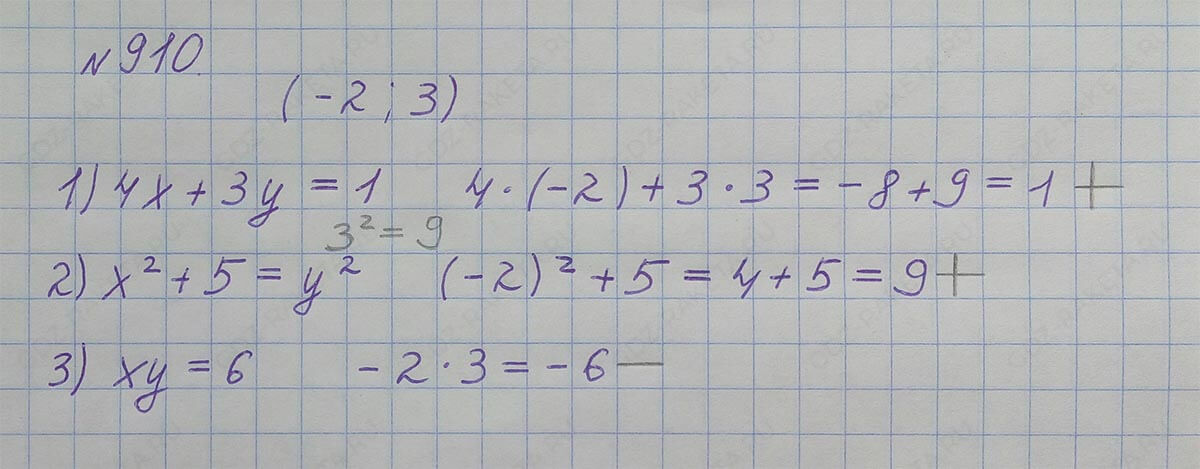 №910.
(-2; 3)
1) 4x + 3y = 1 4·(-2) + 3·3 = -8 + 9 = 1 +
3² = 9
2) x² + 5 = y² (-2)² + 5 = 4 + 5 = 9 +
3) xy = 6 -2·3 = -6 —